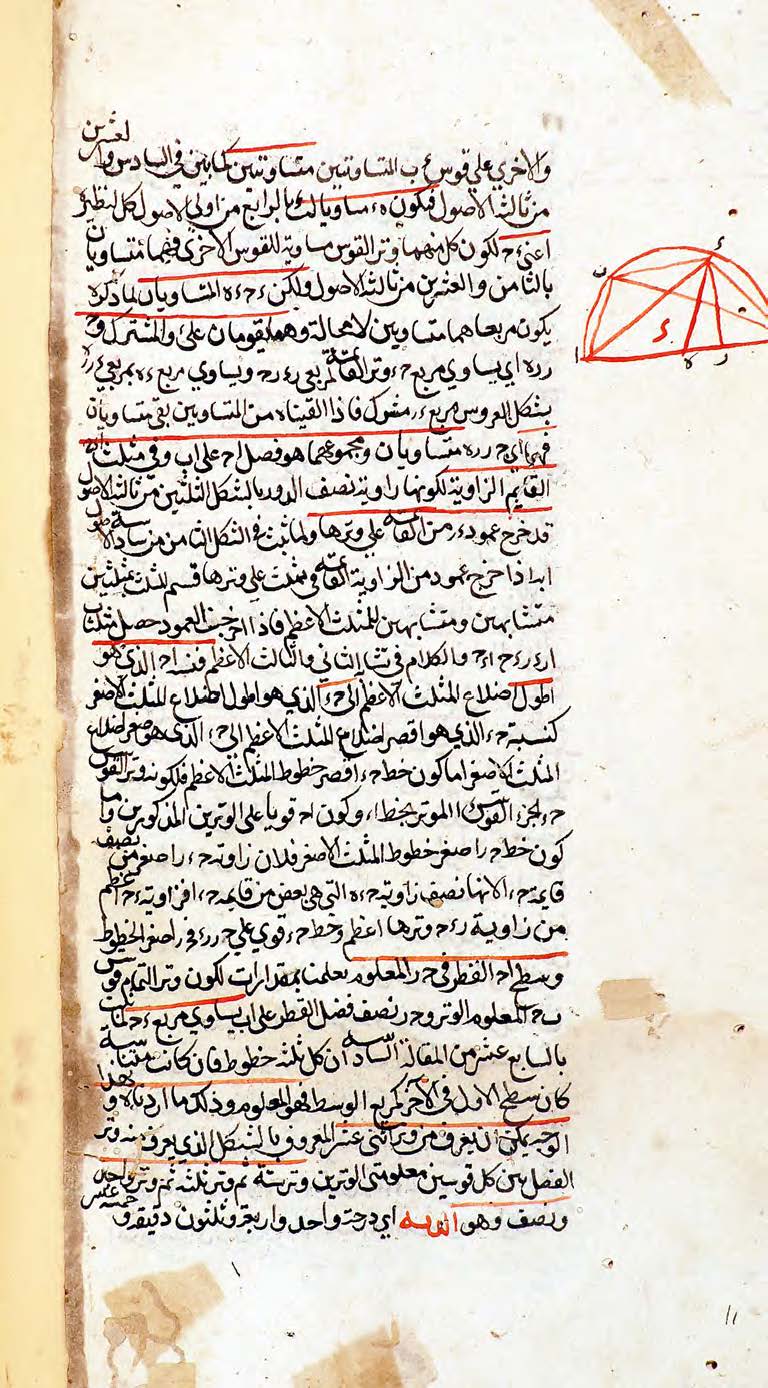 والاخرى على قوس ء ب المتساوتين متساوتين كما بين في السادس والعشرين
من ثالثة الاصول فيكون ده مساويا لـ ء بالرابع من اولى الاصول لكل لنظيره
اعنى ء ح لكون كل منهما وتر القوس مساوية للقوس الاخرى فهما متساويان
بالثامن والعشرين من ثالثة الاصول ولكن ء ح ء ه المتساويان لما ذكره
يكون مربعاهما متساويين لامحالة وهما يقومان على ء ر المشترك و ح ر
ر ه اى يساوي مربع ح ء وتر القائمة لمربعى ر ء ر ح ويساوي مربع ء ه بمربعي ء ر ر ه
بشكل العروس مربع ء ر مشترك فاذا القيناه من المتساويين بقى متساويان
فهما اى ح ر ر ه متساويان ومجموعهما هو فصل ا ح على اب وفي مثلث ا ء ح
القائم الزاوية لكونها زاوية نصف الدور بالشكل الثلثين من ثالثة الاصول
قد خرج عمود ء ر من القائمة على وترها ولما ثبت في الشكل الثامن من سادسة الاصول
ابدا ذا خرج عمود من الزاوية القائمة في مثلث على وترها قسم المثلث بمثلثين
متشابهين ومتشابهين للمثلث الاعظم فاذا اخرجت العمود حصل مثلثان
ا ر ء ر ء ح ا ء ح والكلام في تشابه الثاني والثالث الاعظم فنسبة ا ح الذي هو
اطول اضلاع المثلث الاعظم الى ح ء الذي هو اطول اضلاع المثلث الاصغر
كنسبة ح ء الذي هو اقصر اضلاع المثلث الاعظم الى ح ر الذي هو اصغر اضلاع
المثلث الاصغر اما كون خط ح ء اقصر خطوط المثلث الاعظم فلكونه وتر القوس
ح ء لجزء القوس ا الموتر بخط ا ء وكون ا ح قويا على الوترين المذكورين واما
كون خط ح ر اصغر خطوط المثلث الاصغر فلان زاوية ح ء ر اصغر من نصف
قايمة ح ء لانها نصف زاوية ح ء ه التي هي بعض من قايمة ح ء ا فزاوية ء ح ا اعظم
من زاوية ر ء ح وترها اعظم وخط ح ء قوي على ح ر ر ء فح ر اصغر الخطوط
وسطح ا ح القطر في ح ر المعلوم بعلمنا بمقدار ا ب لكون وتر التمام قوس
ب ح المعلوم الوتر و ح ر نصف فضل القطر على اب يساوي مربع ء ح لما ثبت
بالسابع عشر من المقالة السادسة ان كل ثلثه خطوط فان كانت متناسبة
كان سطح الاول في الآخر كمربع الوسط فهو المعلوم وذلك ما اردناه وبهذا
الوجه يمكن ان يعرف من وتر اثنى عشر المعروف بالشكل الذي يعرف منه وتر
الفصل بين كل قوسين معلومتى الوترين وتر ستة ثم وتر ثلثه ثم وتر واحد
ونصف وهو ا لد يه اى درجة واحد واربعة وثلثون دقيقة وخمسة عشر
ء
ب
ا
ه
ر
١١